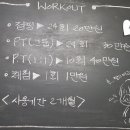 WORKOUT
• 점핑 ▷ 24회 20만원
• PT(그룹) ▷ 24회 30만원
• PT(1:1) ▷ 10회 40만원
• 체험 ▷ 1회 1만원
<사용기간 2개월>